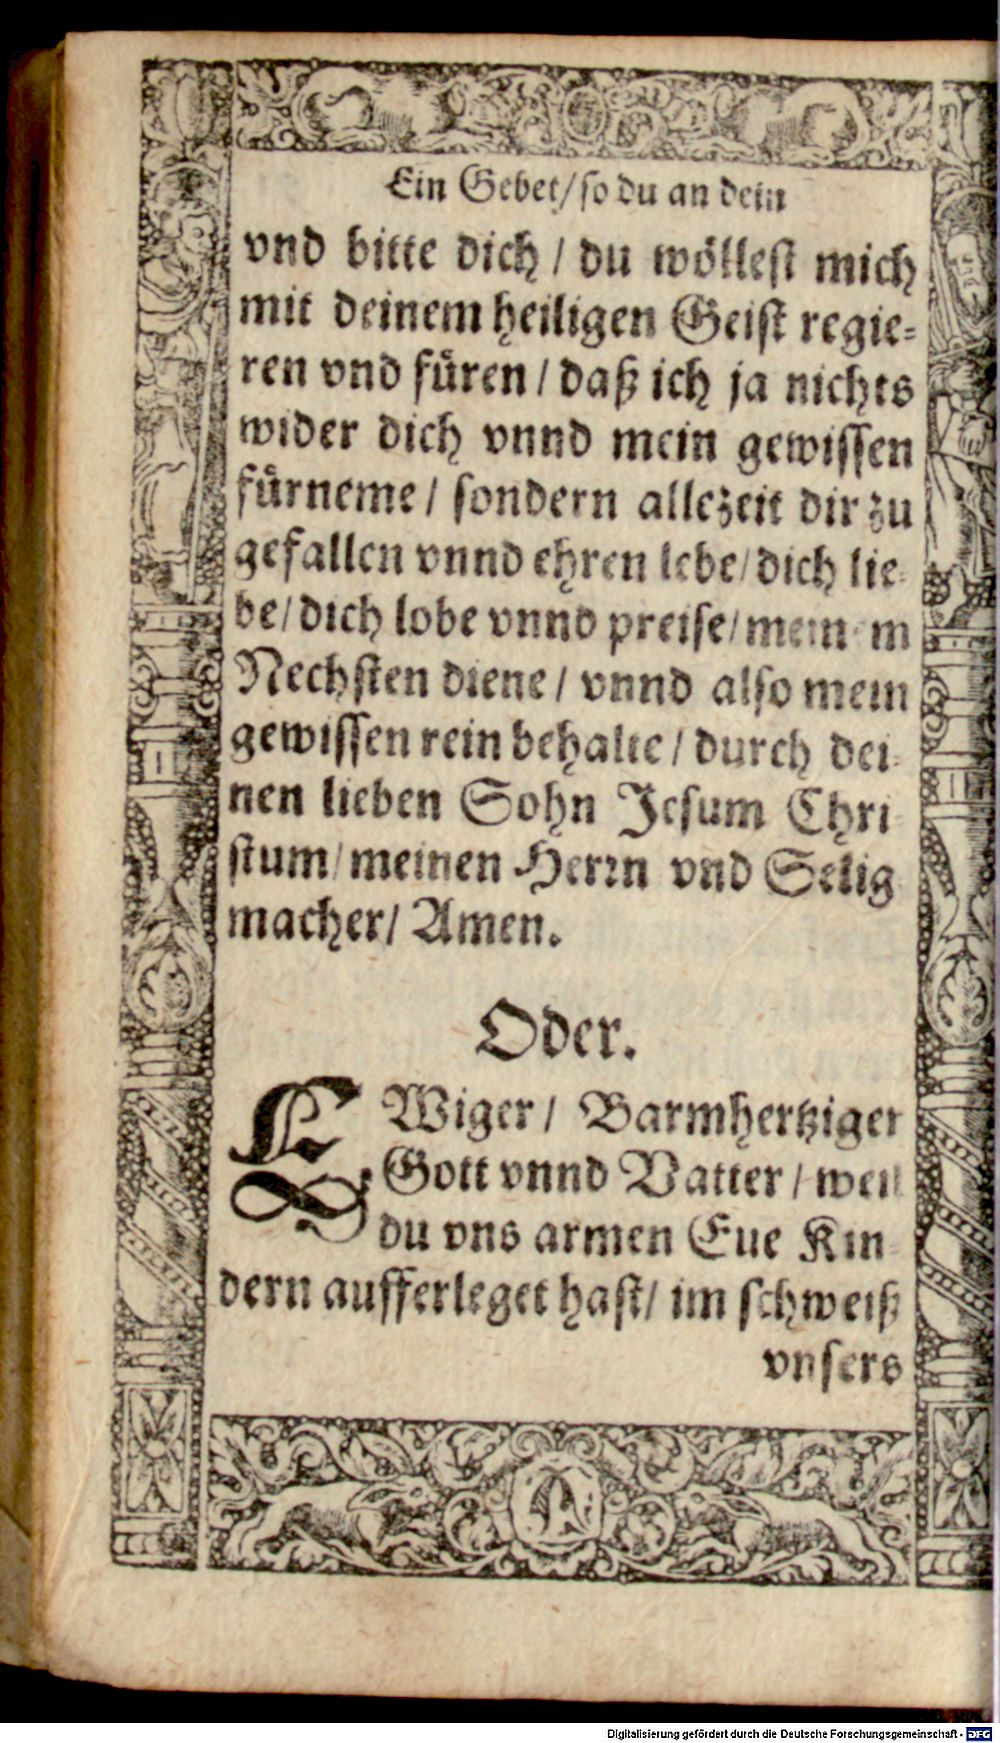 Ein Gebet / so du an dein
vnd bitte dich / du wöllest mich
mit deinem heiligen Geist regie-
ren vnd füren / daß ich ja nichts
wider dich vnnd mein gewissen
fürneme / sondern allezeit dir zu
gefallen vnnd ehren lebe / dich lie-
be / dich lobe vnnd preise / meinem
Nechsten diene / vnnd also mein
gewissen rein behalte / durch dei-
nen lieben Sohn Jesum Chri
stum / meinen Herrn vnd Selig
macher / Amen.
Oder.
EWiger / Barmhertziger
Gott vnnd Vatter / weil
du vns armen Eue Kin-
dern aufferleget hast / im schweiß
vnsers
Digitalisierung gefördert durch die Deutsche Forschungsgemeinschaft - DFG